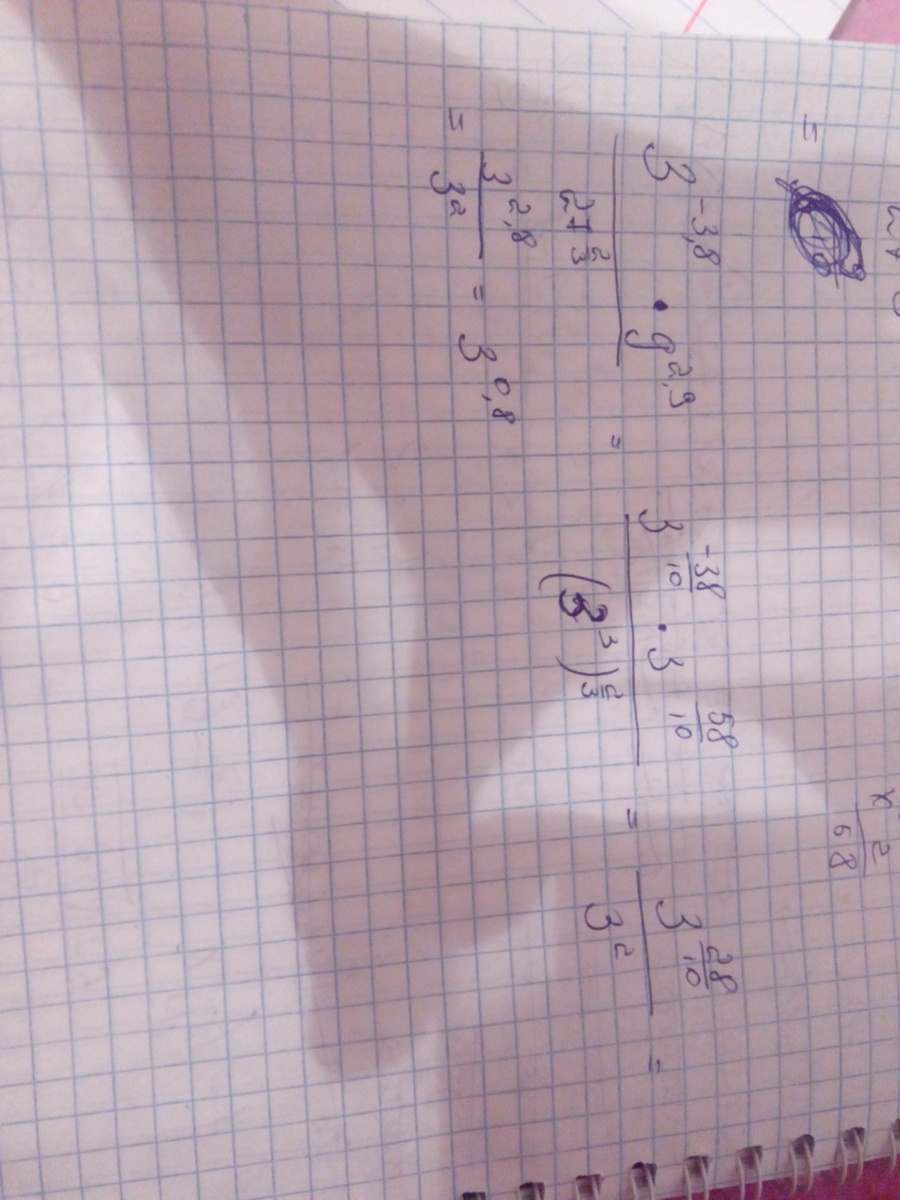 =
3^{-3,8} · 9^{2,9} / 27^{2/3} = 3^{-38/10} · 3^{58/10} / (3^3)^{2/3} = 3^{28/10} / 3^2 =
= 3^{2,8} / 3^2 = 3^{0,8}
x 2
68